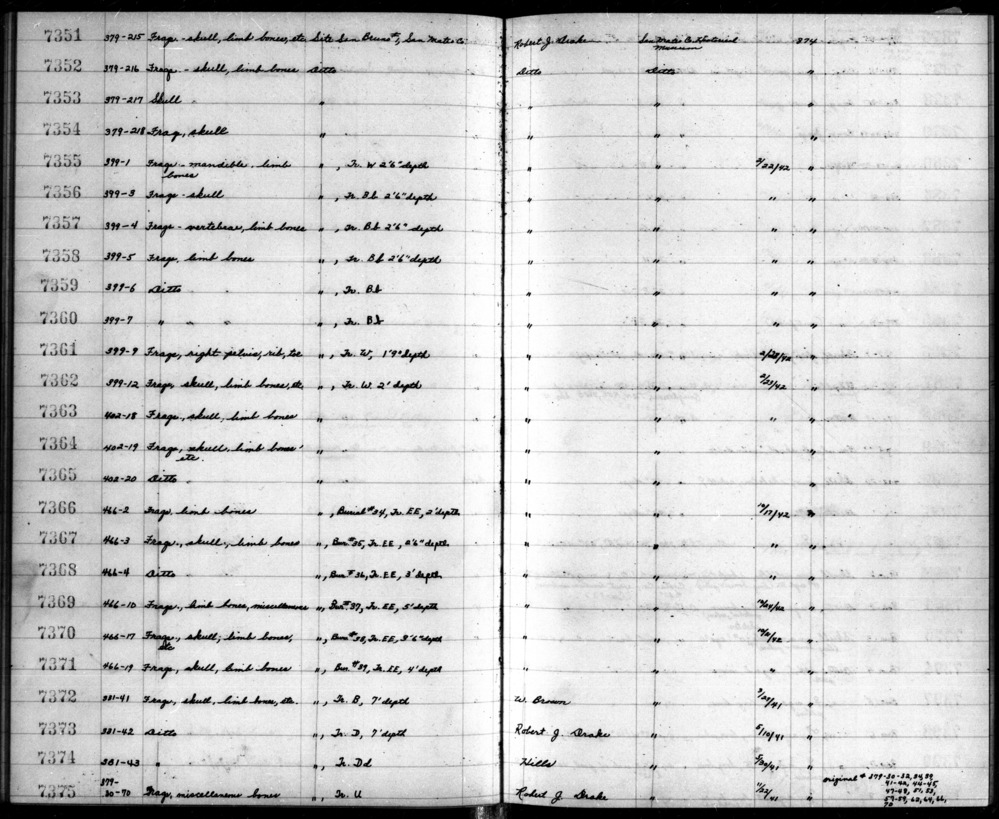 7351 379-215 Frags - skull, limb bones, etc Site San Bruno, San Mateo Co. Robert J. Drake San Mateo Co. Historical 374
Museum
7352 379-216 Frags. - skull, limb bones Ditto Ditto Ditto "
7353 379-217 Skull " " " "
7354 379-218 Frag, skull " " " "
7355 399-1 Frags - mandible, limb ", Tr. W 2'6" depth " " /22/42 "
bones
7356 399-3 Frags - skull ", Tr. Bb 2'6" depth " " " "
7357 399-4 Frags - vertebrae, limb bones ", Tr. Bb 2'6" depth " " " "
7358 399-5 Frags, limb bones ", Tr Bb 2'6" depth " " " "
7359 399-6 Ditto ", Tr. Bb " " " "
7360 399-7 " " " ", Tr. Bb " " " "
7361 399-9 Frags, right pelvis, rib, toe ", Tr. W, 1'9" depth " " 2/28/42 "
7362 399-12 Frags, skull, limb bones, etc. ", Tr. W. 2' depth " " 2/23/42 "
7363 402-18 Frags, skull, limb bones " " " " "
7364 402-19 Frags, skull, limb bones " " " " "
etc.
7365 402-20 Ditto " " " " "
7366 466-2 Frags, limb bones ", Burial #34, Tr. EE, 2' depth " " /17/42 "
7367 466-3 Frags., skull, limb bones ", Bur. #35, Tr. EE, 2'6" depth " " " "
7368 466-4 Ditto ", Bur. #36, Tr. EE, 3' depth " " " "
7369 466-10 Frags., limb bones, miscellaneous ", Bur. #37, Tr. EE, 5' depth " " "
7370 466-17 Frags., skull, limb bones, ", Bur. #38, Tr. EE, 3'6" depth " " "
etc
7371 466-19 Frags, skull, limb bones ", Bur. #39, Tr. EE, 4' depth " " " "
7372 381-41 Frags, skull, limb bones, etc. ", Tr. B, 7' depth W. Brown " "
7373 381-42 Ditto ", Tr. D, 7' depth Robert J. Drake " 5/10/41 "
7374 381-43 " ", Tr. Dd Hills " "
7375 379-30-70 Frags, miscellaneous bones ", Tr. U Robert J. Drake " 1/22/41 " original # 379-30-32, 34, 39,
41-42, 44-45,
47-48, 51, 53,
57-59, 62, 64, 66,
70